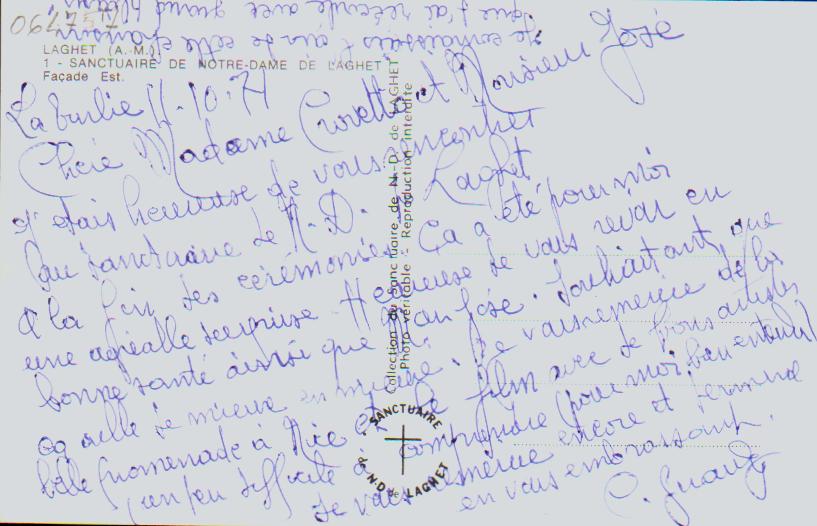 je connaissais l'air de cette chanson
que j'ai récitée avec grand
LAGHET (A.-M.)
1 - SANCTUAIRE DE NOTRE-DAME DE LAGHET
Façade Est.
La 11.10.71
Chère Madame et Monsieur José
J'étais heureuse de vous rencontrer
au sanctuaire de N.D. de Laghet
à la fin des cérémonies. Ça a été pour moi
une agréable surprise. Heureuse de vous revoir en
bonne santé ainsi que José. Souhaitant que
ça aille de mieux en mieux. Je vous remercie de la
belle promenade à Nice et le film avec de bons artistes
(un peu difficile à comprendre pour moi bien entendu)
Je vous remercie encore et termine
en vous embrassant.
Collection du Sanctuaire de N.-D. de LAGHET
Photo véritable - Reproduction interdite
SANCTUAIRE
de N.D. de LAGHET